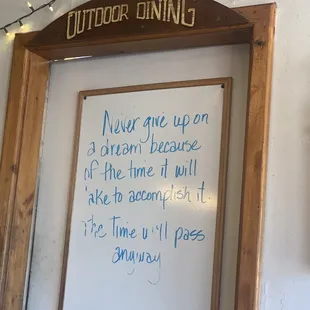 OUTDOOR DINING
Never give up on
a dream because
of the time it will
take to accomplish it.
The Time will pass
anyway